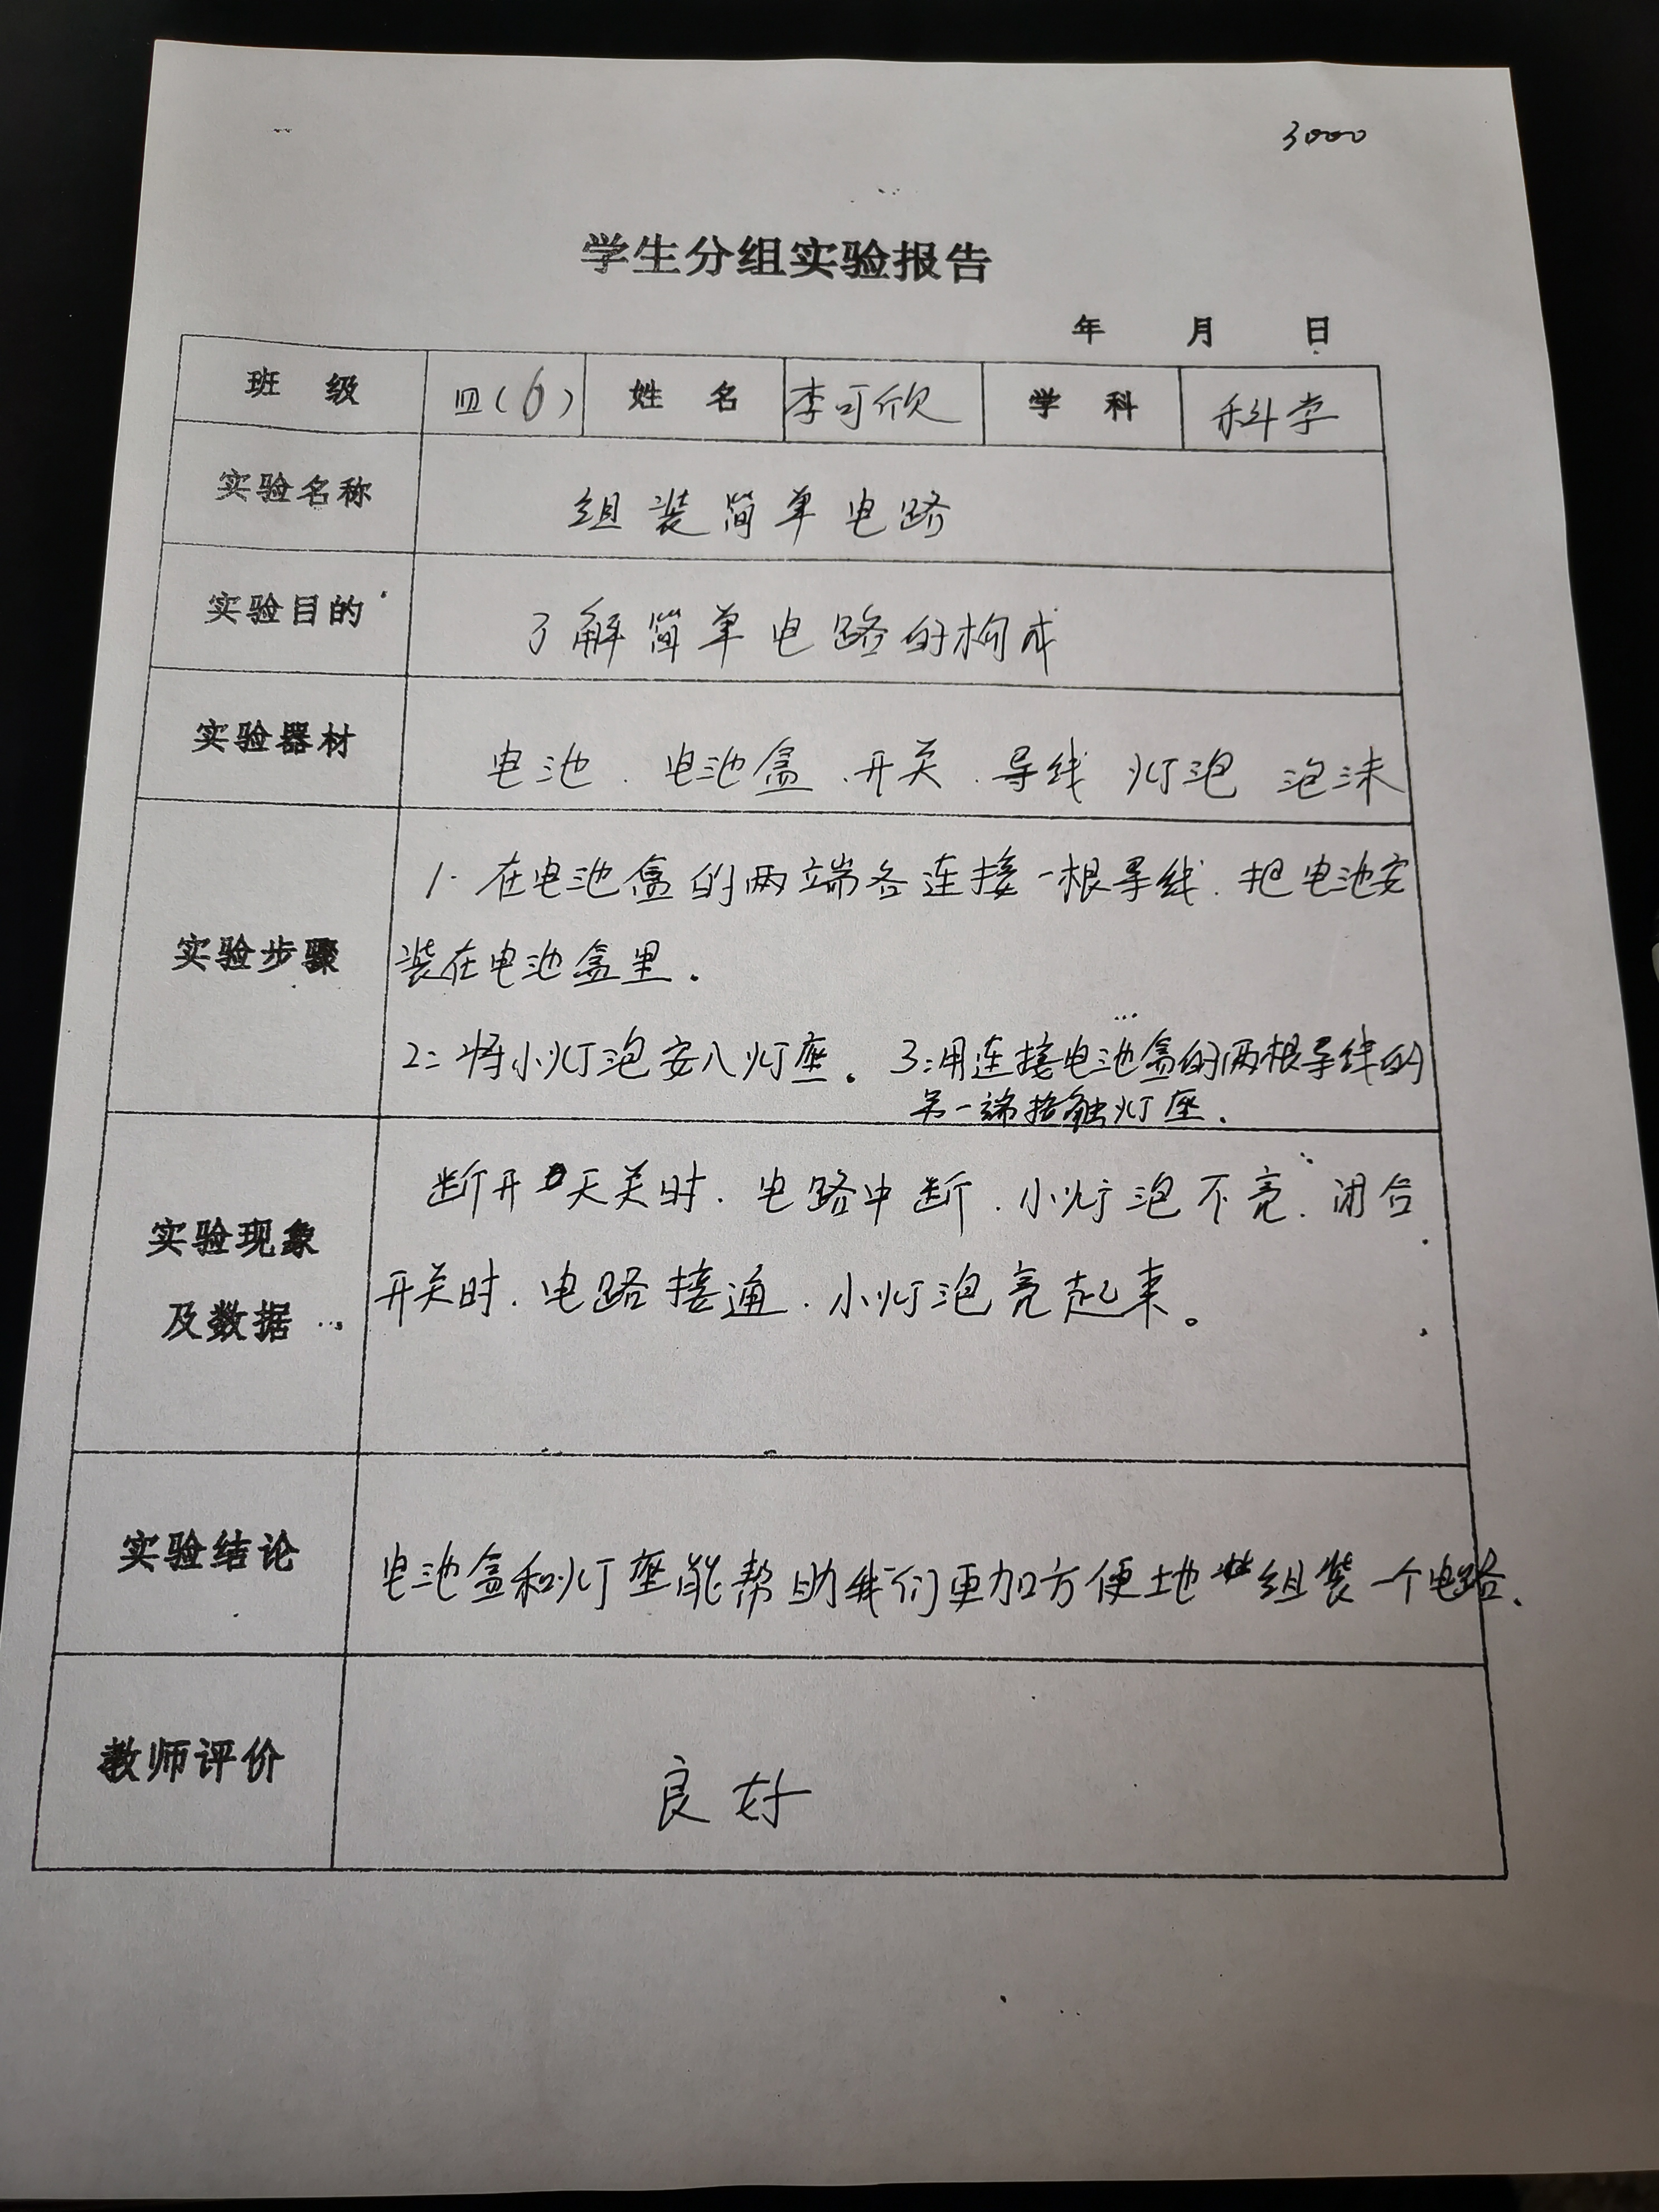 3000
学生分组实验报告
年 月 日
班 级 四(6) 姓 名 李可欣 学 科 科学
实验名称 组装简单电路
实验目的 了解简单电路的构成
实验器材 电池、电池盒、开关、导线 灯泡 泡沫
1. 在电池盒的两端各连接一根导线、把电池安
实验步骤 装在电池盒里。
2: 将小灯泡安入灯座。 3:用连接电池盒的两根导线的
另一端接触灯座。
断开天关时、电路中断、小灯泡不亮、闭合
实验现象
开关时、电路接通、小灯泡亮起来。
及数据
实验结论 电池盒和灯座能帮助我们更加方便地组装一个电路、
教师评价 良好